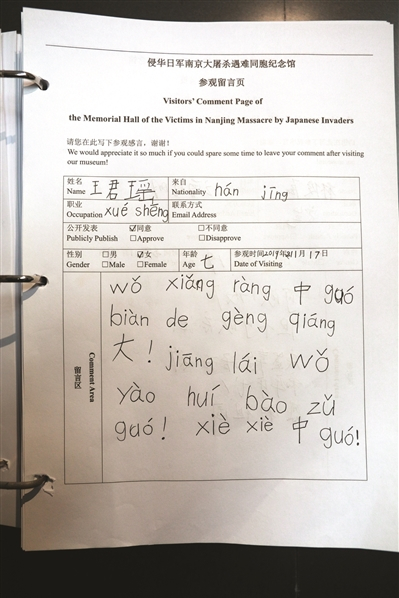 侵华日军南京大屠杀遇难同胞纪念馆
参观留言页
Visitors' Comment Page of
the Memorial Hall of the Victims in Nanjing Massacre by Japanese Invaders
请您在此写下参观感言，谢谢！
We would appreciate it so much if you could spare some time to leave your comment after visiting
our museum!
姓名 Name 王君瑶 来自 Nationality hán jīng
职业 Occupation xué shēng 联系方式 Email Address
公开发表 ☑同意 □不同意
Publicly Publish □Approve □Disapprove
性别 □男 ☑女 年龄 七 参观时间2019年11月17日
Gender □Male □Female Age Date of Visiting
留言区 Comment Area
wǒ xiǎng ràng 中 guó
biàn de gèng qiáng
大！jiāng lái wǒ
yào huí bào zǔ
guó！ xiè xiè 中 guó!